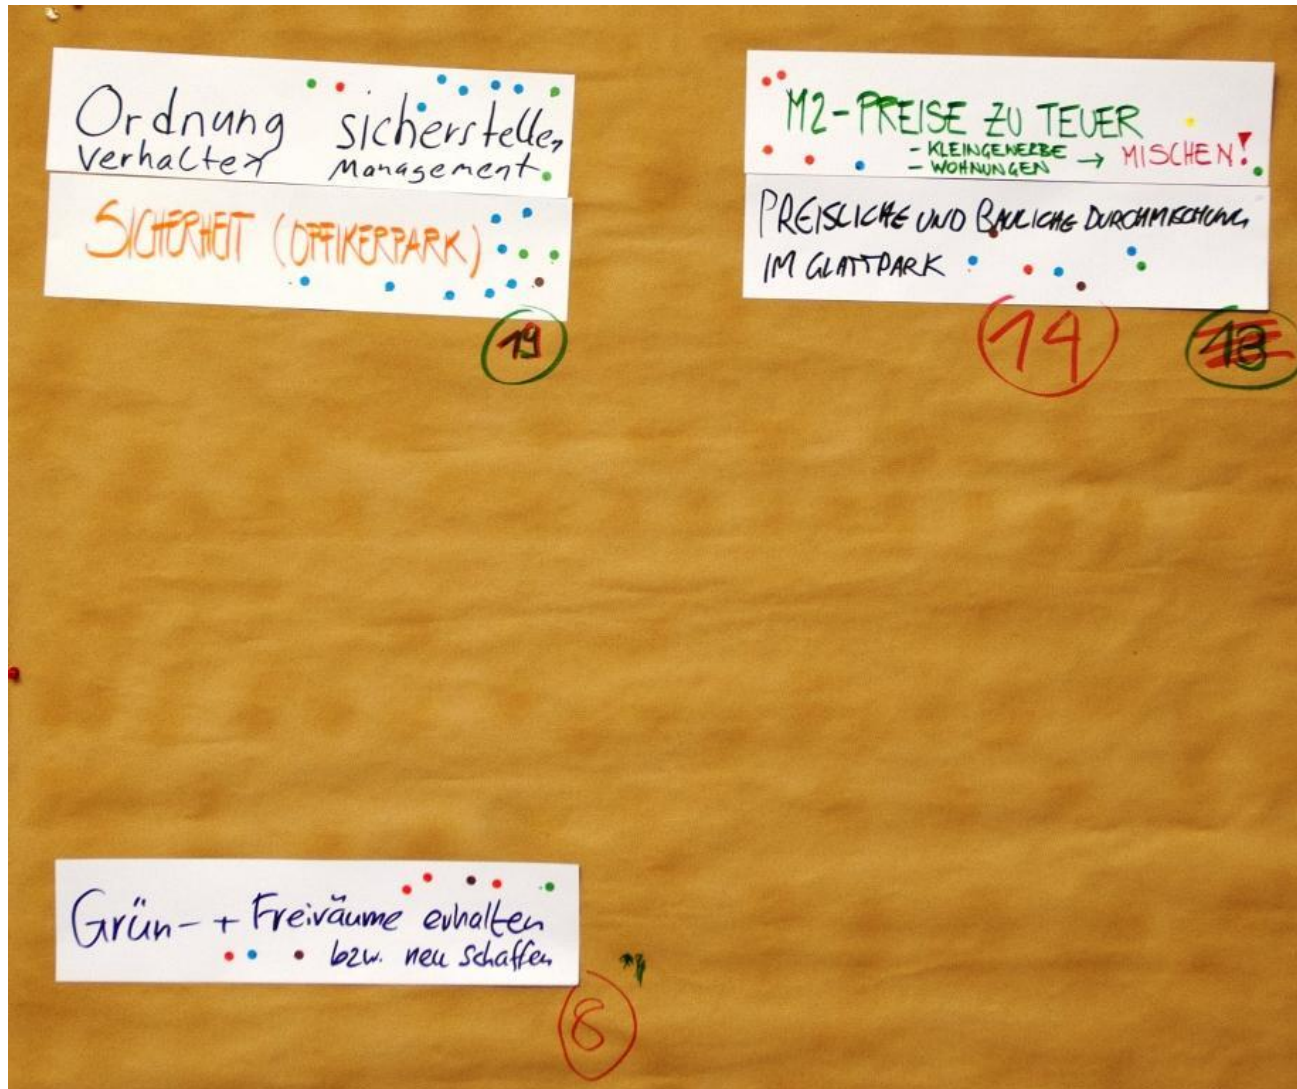 Ordnung sicherstellen
Verhalten Management
SICHERHEIT (OPFIKERPARK)
19
M2-PREISE ZU TEUER
- KLEINGEWERBE
- WOHNUNGEN → MISCHEN!
PREISLICHE UND BAULICHE DURCHMISCHUNG
IM GLATTPARK
14
13
Grün- + Freiräume erhalten
bzw. neu schaffen
8